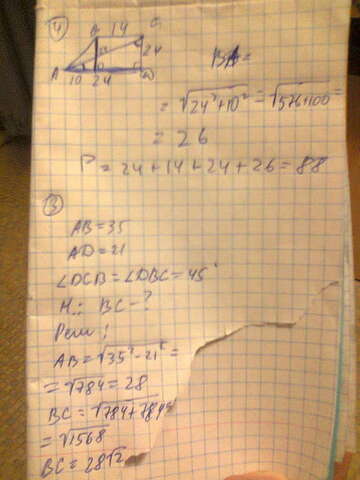 ④
B 14 C
24
A 10 24 D
BA =
= √24²+10² = √576+100 =
= 26
P = 24+14+24+26 = 88
③
AB = 35
AD = 21
∠DCB = ∠DBC = 45°
Н.: BC - ?
Реш:
AB = √35²-21² =
= √784 = 28
BC = √784+784
= √1568
BC = 28√2